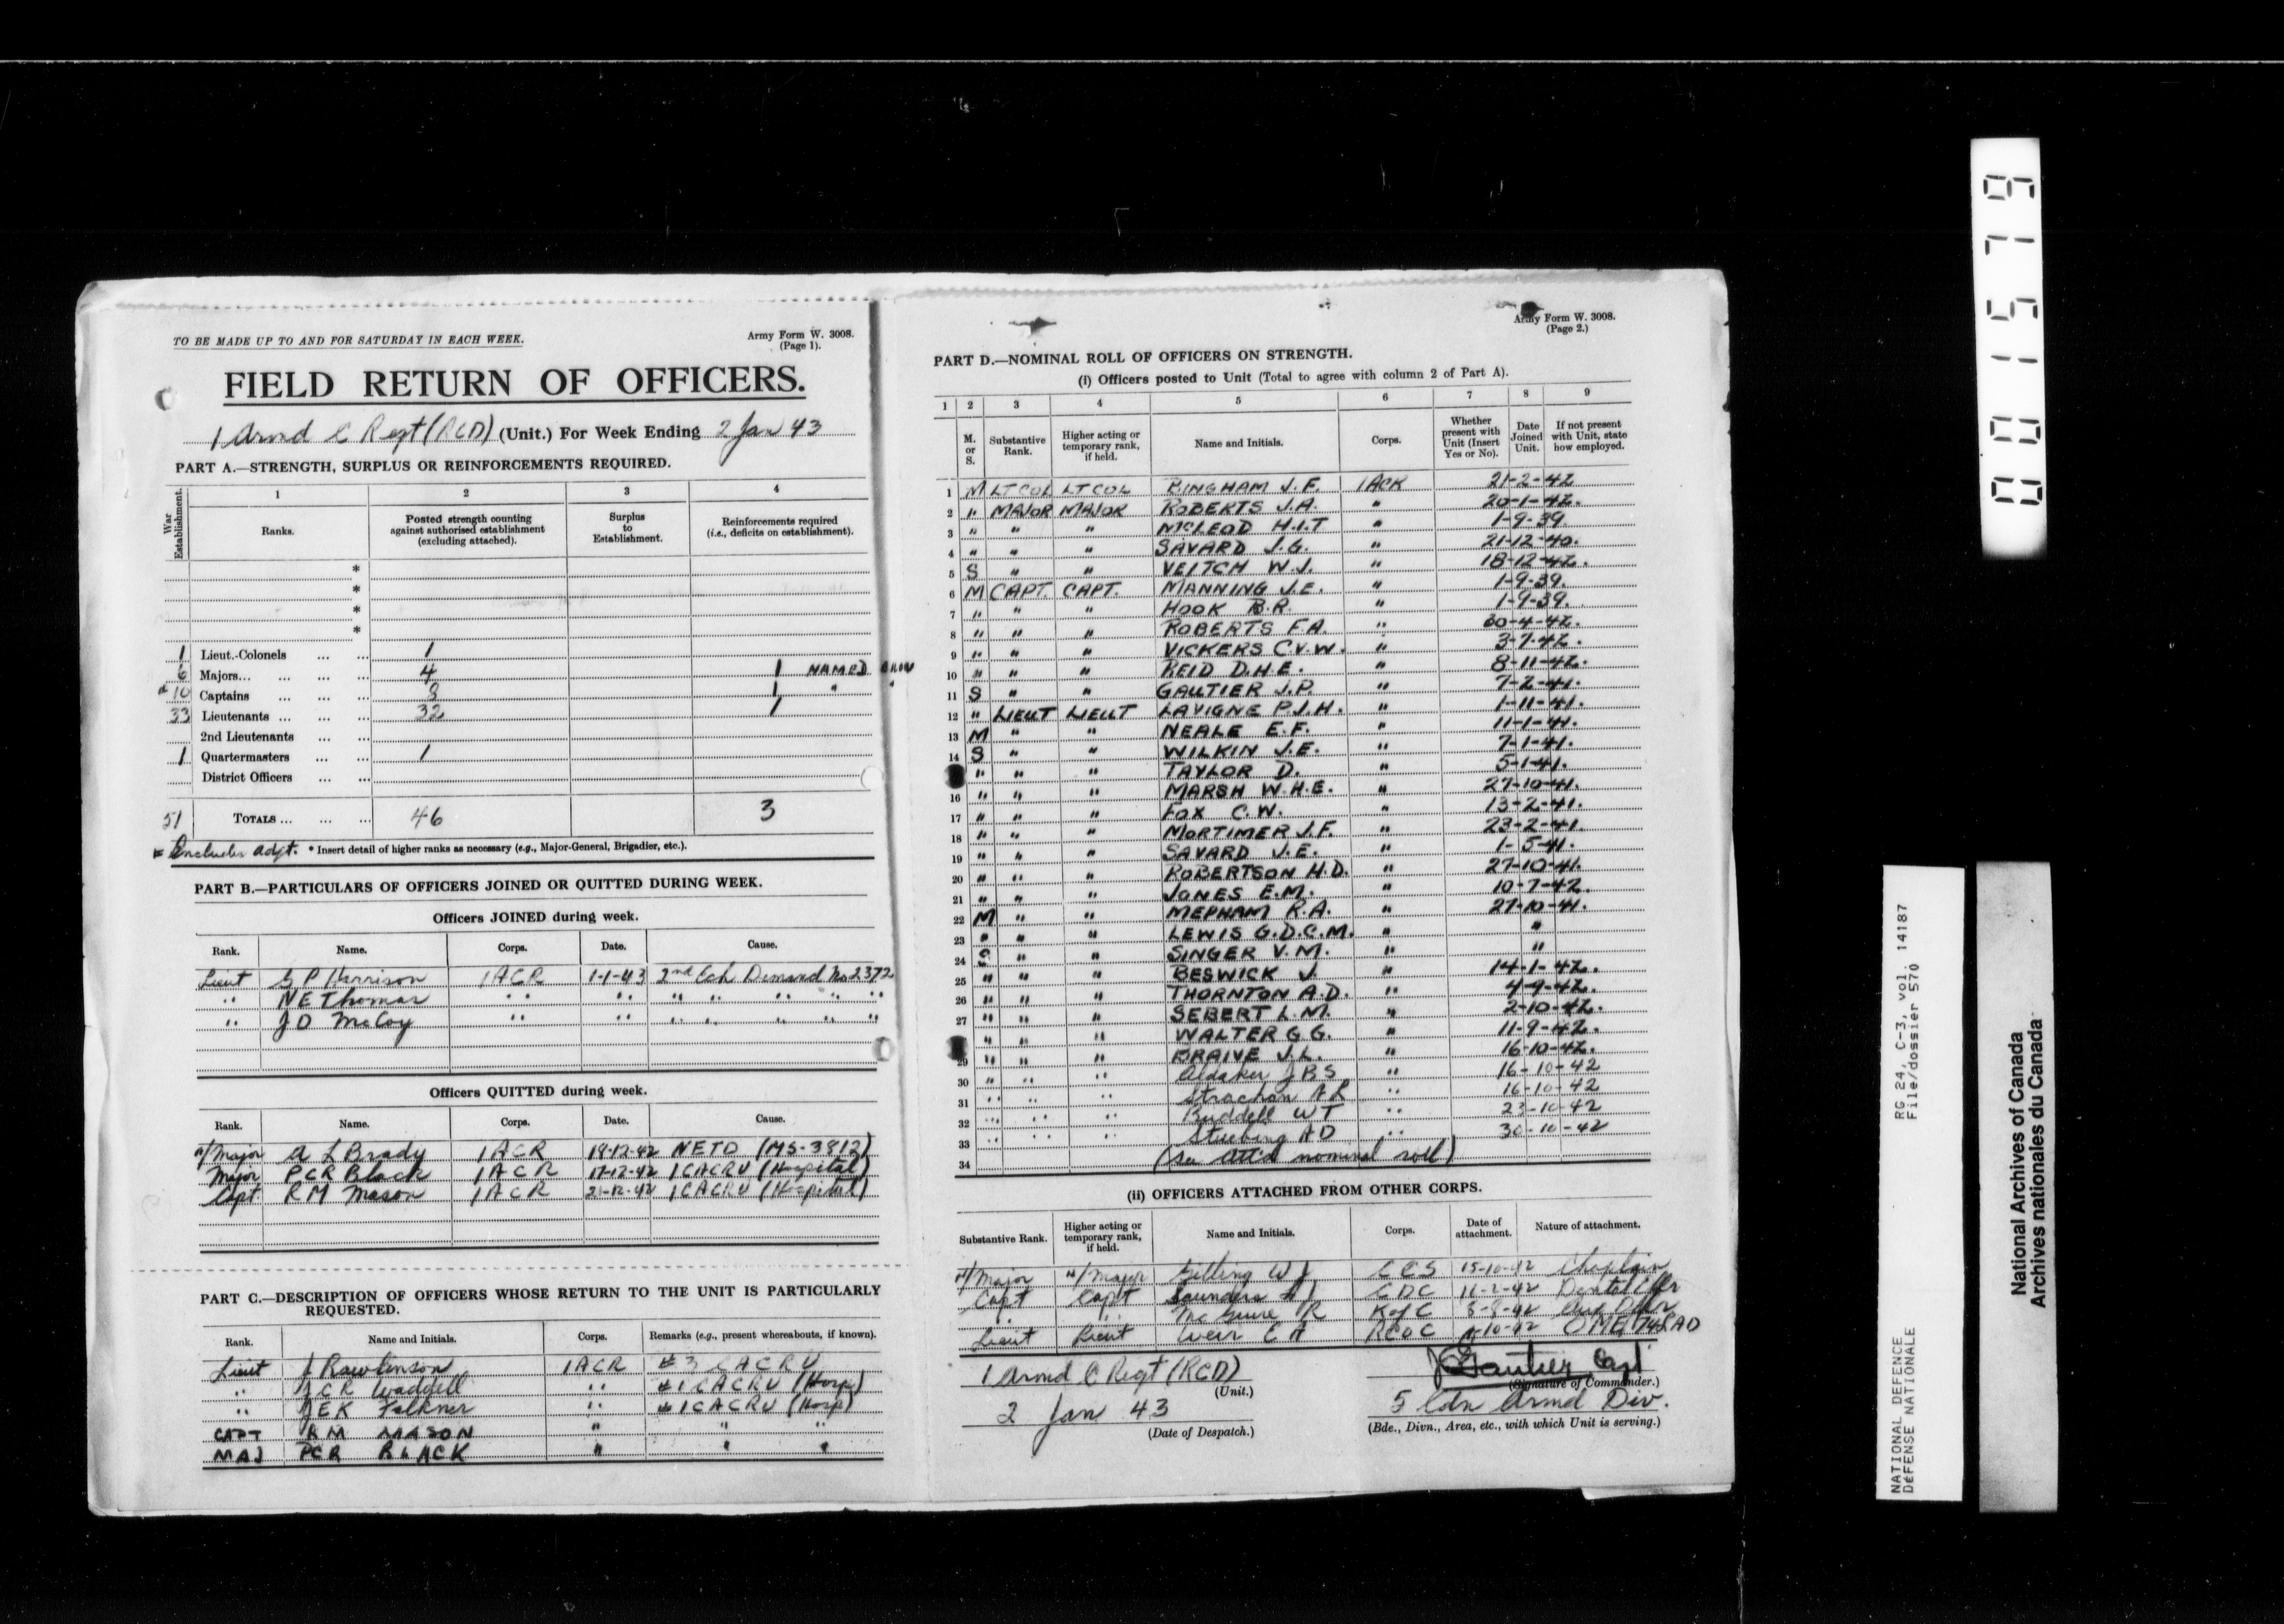 TO BE MADE UP TO AND FOR SATURDAY IN EACH WEEK.
Army Form W. 3008.
(Page 1).
FIELD RETURN OF OFFICERS.
1 Armd C Regt (RCD) (Unit.) For Week Ending 2 Jan 43
PART A.—STRENGTH, SURPLUS OR REINFORCEMENTS REQUIRED.
War Establishment. 1 2 3 4
Ranks. Posted strength counting against authorised establishment (excluding attached). Surplus to Establishment. Reinforcements required (i.e., deficits on establishment).
*
*
*
*
1 Lieut.-Colonels ... ... 1
6 Majors... ... ... ... 4 1 NAMED
* 10 Captains ... ... ... 8 1 "
33 Lieutenants ... ... ... 32 1
2nd Lieutenants ... ...
1 Quartermasters ... ... 1
District Officers ... ...
51 TOTALS ... ... ... 46 3
* Includes adjt. * Insert detail of higher ranks as necessary (e.g., Major-General, Brigadier, etc.).
PART B.—PARTICULARS OF OFFICERS JOINED OR QUITTED DURING WEEK.
Officers JOINED during week.
Rank. Name. Corps. Date. Cause.
Lieut G P Harrison 1 ACR 1-1-43 2nd Ech Demand No 2372
" N E Thomas " " " " " " "
" J D McCoy " " " " " " "
Officers QUITTED during week.
Rank. Name. Corps. Date. Cause.
A/Major A L Brady 1 ACR 19-12-42 NETD (MS-3912)
Major PCR Black 1 ACR 17-12-42 1 CACRU (Hospital)
Capt R M Mason 1 ACR 1 CACRU (Hospital)
PART C.—DESCRIPTION OF OFFICERS WHOSE RETURN TO THE UNIT IS PARTICULARLY REQUESTED.
Rank. Name and Initials. Corps. Remarks (e.g., present whereabouts, if known).
Lieut J Rawlinson 1ACR #3 CACRU
" J C R Waddell " #1 CACRU (Hosp)
" J E K Falkner " #1 CACRU (Hosp)
CAPT R M MASON " " "
MAJ PCR BLACK " " "
Army Form W. 3008.
(Page 2.)
PART D.—NOMINAL ROLL OF OFFICERS ON STRENGTH.
(i) Officers posted to Unit (Total to agree with column 2 of Part A).
1 2 3 4 5 6 7 8 9
M. or S. Substantive Rank. Higher acting or temporary rank, if held. Name and Initials. Corps. Whether present with Unit (Insert Yes or No). Date Joined Unit. If not present with Unit, state how employed.
1 M LT COL LT COL BINGHAM J.F. 1ACR 21-2-42
2 " MAJOR MAJOR ROBERTS J.A. " 20-1-42.
3 " " " MCLEOD H.I.T " 1-9-39
4 " " " SAVARD J.G. " 21-12-40.
5 S " " VEITCH W.J. " 18-12-42.
6 M CAPT. CAPT. MANNING J.E. " 1-9-39.
7 " " " HOOK B.R. " 1-9-39.
8 " " " ROBERTS F.A. " 30-4-42.
9 " " " VICKERS C.V.W. " 3-7-42.
10 " " " REID D.H.E. " 8-11-42.
11 S " " GAUTIER J.P. " 7-2-41.
12 " LIEUT LIEUT LAVIGNE P.J.H. " 1-11-41.
13 M " " NEALE E.F. " 11-1-41.
14 S " " WILKIN J.E. " 7-1-41.
" " " TAYLOR D. " 5-1-41.
16 " " " MARSH W.H.E. " 27-10-41.
17 " " " FOX C.W. " 13-2-41.
18 " " " MORTIMER J.F. " 23-2-41.
19 " " " SAVARD J.E. " 1-5-41.
20 " " " ROBERTSON H.D. " 27-10-41.
21 " " " JONES E.M. " 10-7-42.
22 M " " MEPHAM R.A. " 27-10-41.
23 " " " LEWIS G.D.C.M. " "
24 S " " SINGER V.M. " "
25 " " " BESWICK J. " 14-1-42.
26 " " " THORNTON A.D. " 4-9-42.
27 " " " SEBERT L.M. " 2-10-42.
" " " WALTER G G. " 11-9-42.
29 " " " BRAIVE J.L. " 16-10-42.
30 " " " Aldaker J B S " 16-10-42
31 " " " Strachan A R " 16-10-42
32 " " " Buddell W T " 23-10-42
33 " " " Stuebing A D " 30-10-42
34 (See att'd nominal roll)
(ii) OFFICERS ATTACHED FROM OTHER CORPS.
Substantive Rank. Higher acting or temporary rank, if held. Name and Initials. Corps. Date of attachment. Nature of attachment.
H/Major H/Major Gilling W J CCS 15-10-42 Chaplain
Capt Capt Saunders CDC 11-2-42 Dental Offr
" " McGuire R K of C 8-8-42 Aux Offr
Lieut Lieut Weir C A RCOC OME 74 LAD
1 Armd C Regt (RCD)
(Unit.)
2 Jan 43
(Date of Despatch.)
J Gautier Capt
(Signature of Commander.)
5 Cdn Armd Div.
(Bde., Divn., Area, etc., with which Unit is serving.)
001579
NATIONAL DEFENCE RG 24, C-3, vol. 14187
DÉFENSE NATIONALE File/dossier 570
National Archives of Canada
Archives nationales du Canada